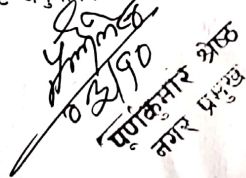 ०३/१०
पूर्णकुमार श्रेष्ठ
नगर प्रमुख